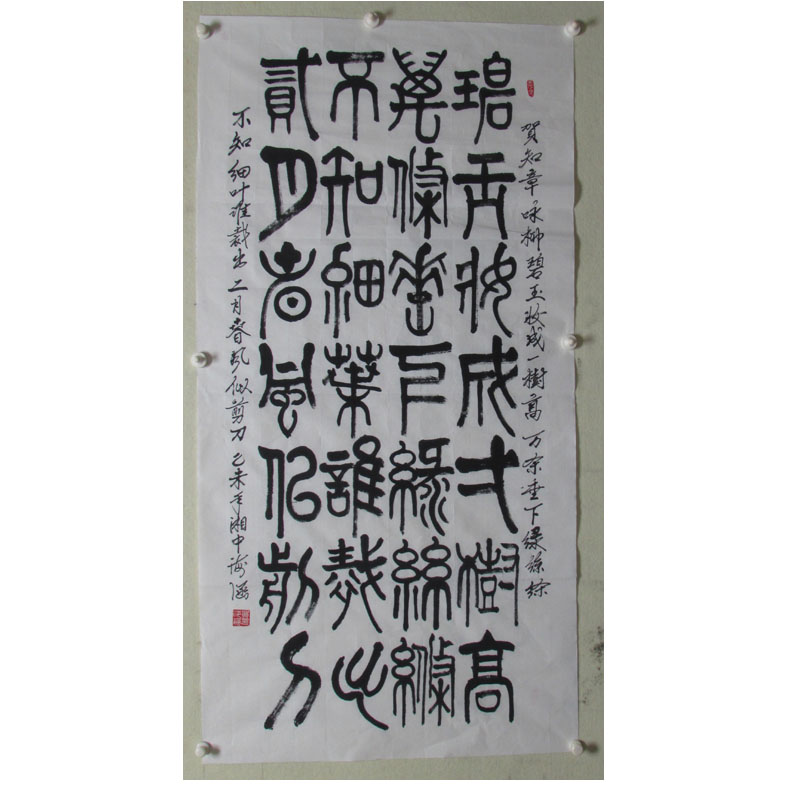 賀知章咏柳碧玉妝成一樹高万条垂下绿絲縧
碧玉妝成弌樹高
萬條垂下綠絲縧
不知細葉誰裁出
貳月春風佀剪刀
不知细叶谁裁出二月春风似剪刀乙未年湘中